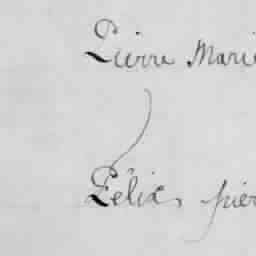 Pierre Marie
Félix, pier